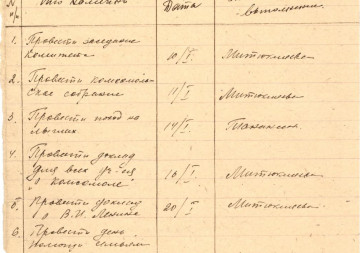 N п/о Дата
1. Провести заседание
Комитета 10/I Митюкляева
2. Провести комсомоль
ское собрание 11/I Митюкляева
3. Провести поход на
лыжах 14/I
4. Провести доклад
для всех
"о Комсомоле" 16/I Митюкляева
5. Провести доклад
о В.И. Ленине 20/I Митюкляева
6. Провести день
помощи семьям